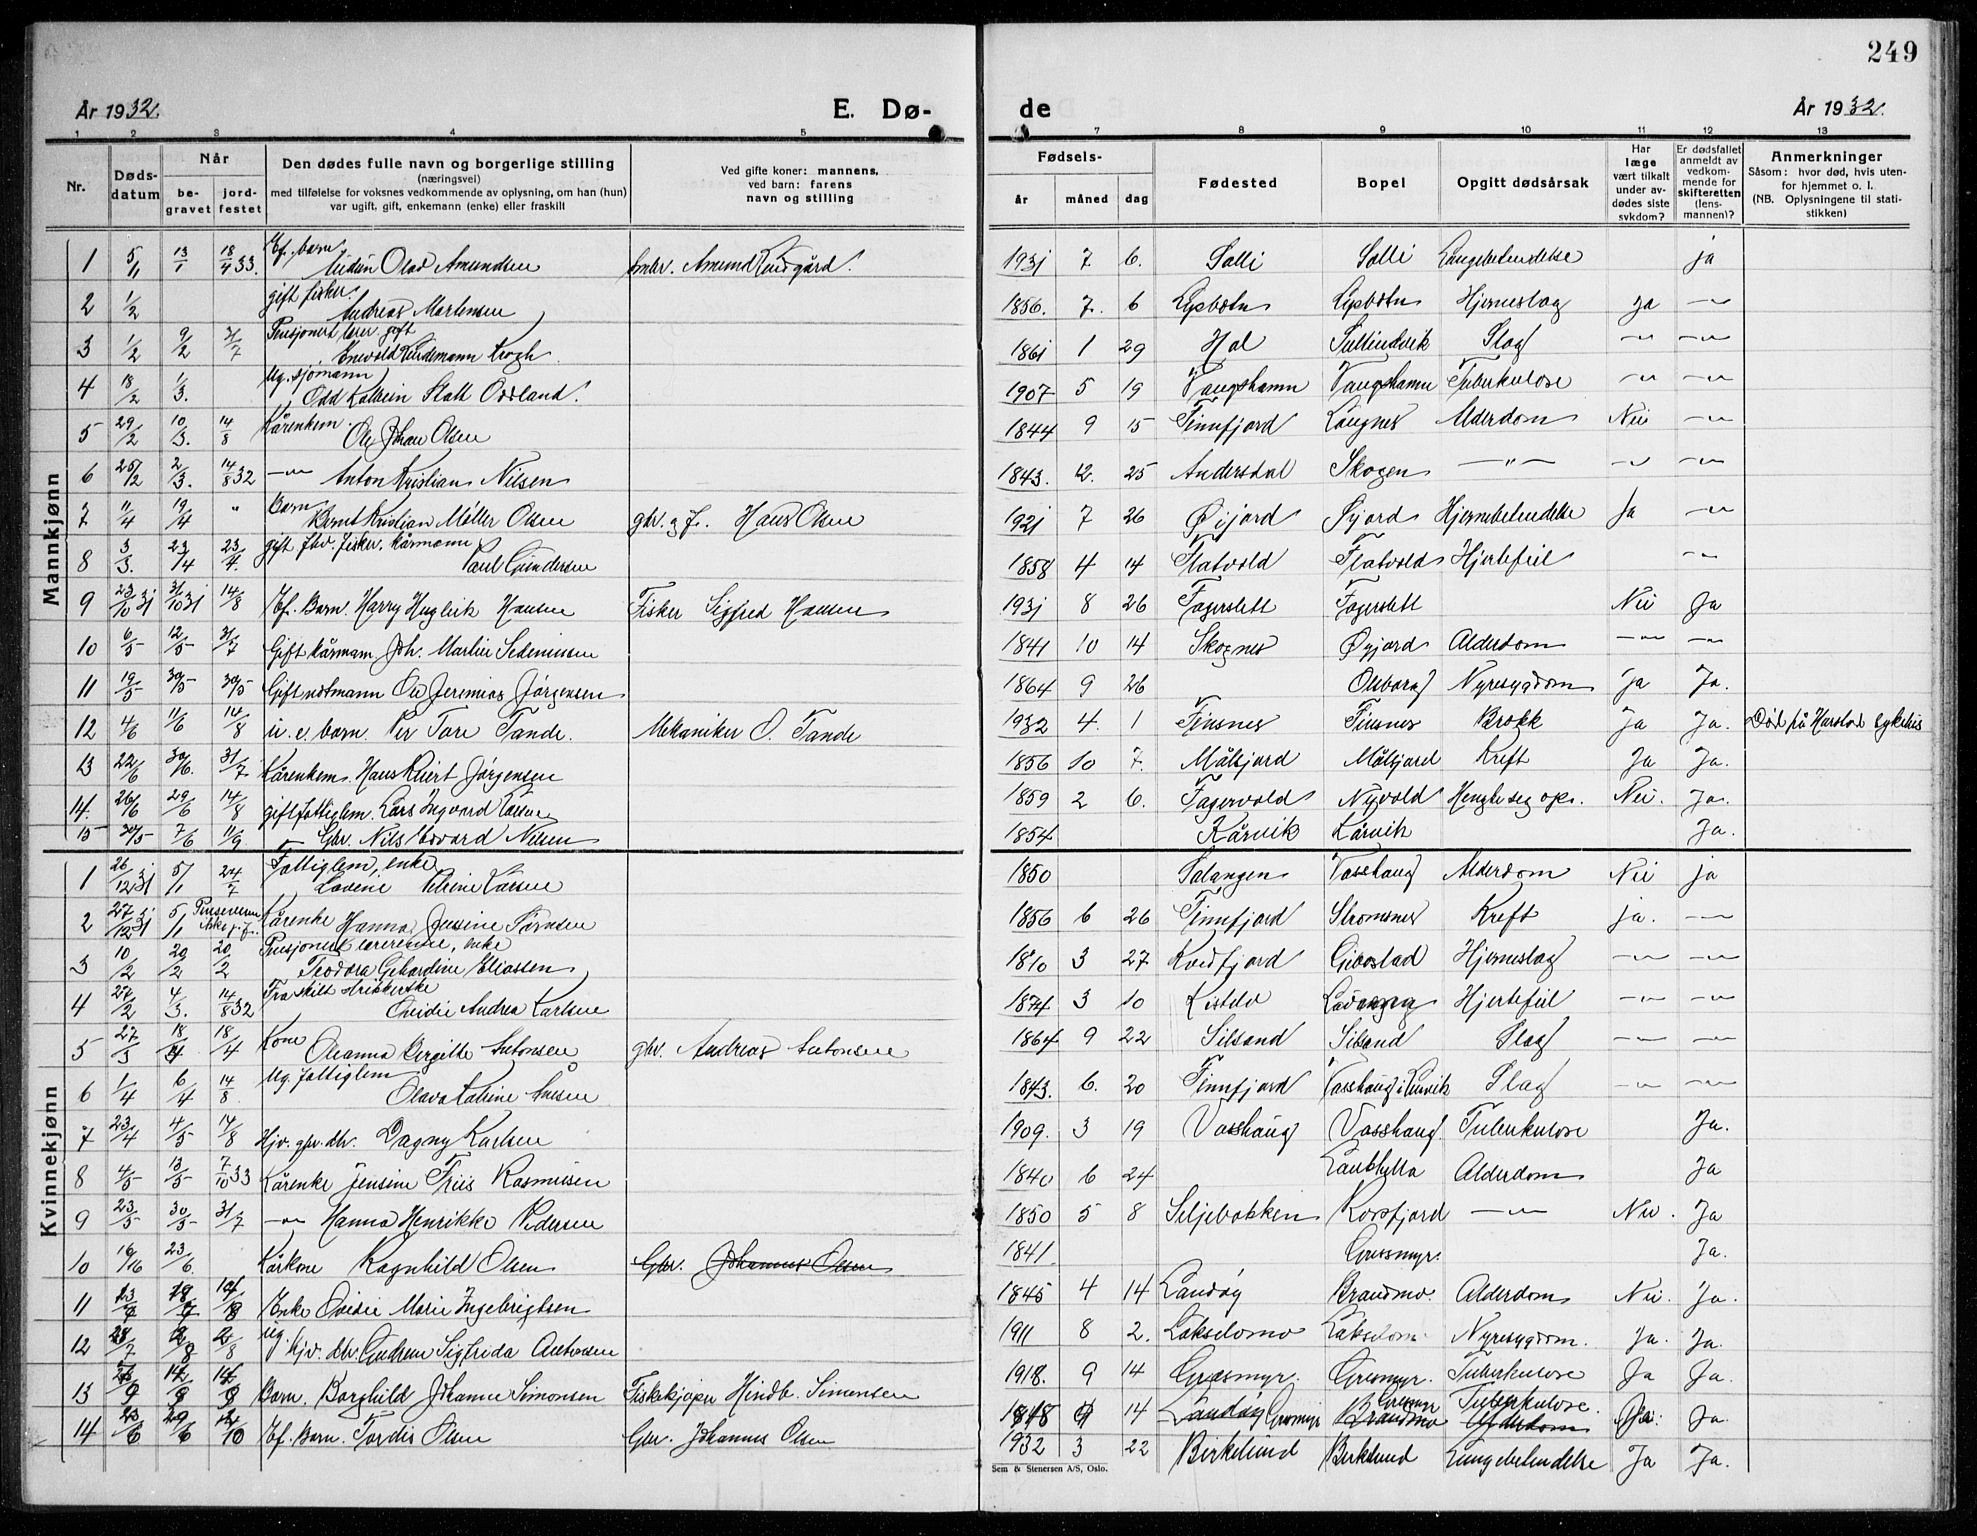 249
År 1932.
E. Dø-
de
År 1932.
1 2 3 4 5 7 8 9 10 11 12 13
Nr.
Døds-
datum
Når
be-
gravet
jord-
festet
Den dødes fulle navn og borgerlige stilling
(næringsvei)
med tilføielse for voksnes vedkommende av oplysning, om han (hun)
var ugift, gift, enkemann (enke) eller fraskilt
Ved gifte koner: mannens,
ved barn: farens
navn og stilling
Fødsels-
år måned dag
Fødested
Bopel
Opgitt dødsårsak
Har
læge
vært tilkalt
under av-
dødes siste
sykdom?
Er dødsfallet
anmeldt av
vedkom-
mende for
skifteretten
(lens-
mannen)?
Anmerkninger
Såsom: hvor død, hvis uten-
for hjemmet o. l.
(NB. Oplysningene til stati-
stikken)
Mannkjønn
1 5/1 13/1 18/4 33. Ef. barn Olav Amundsen Amund 1931 7 6. Solli Solli Lungebetendelse ja
2 1/2 gift fisker Andreas Martensen 1856. 7. 6 Lysbotn Lysbotn Hjerneslag Ja -"-
3 1/2 9/2 31/7 Pensjonert lærer, gift Enevold Lindemann Krogh 1861 1 29 Hol Sultindvik Slag -"- -"-
4 18/2 1/3. Ug. sjømann Odd Kolbein Oddland. 1907 5 19 Vangshamn Vangshamn Tuberkulose -"- -"-
5 29/2 10/3. 14/8 Kårenkem. Ole Johan Olsen 1844 9 15 Finnfjord Laugnes Alderdom Nei -"-
6 25/2 2/3. 14/8 32 -"- Anton Kristian Nilsen 1843. 12. 25 Andersdal Skogen -"- -"- -"-
7 11/4 19/4 " Barn Bernt Kristian Möller Olsen gbr. og f. Hans Olsen 1921 7 26 Øijord Øyjord Hjernebetendelse Ja -"-
8 3/3. 23/4 23/4. gift fhv. fisker, kårmann Paul Gundersen 1858 4 14 Flatvold Flatvold Hjertefeil -"-
9 23/10 31 31/10 31 14/8 Ef. Barn. Harry Hugleik Hansen Fisker Sigfred Hansen 1931 8 26 Fagerslett Fagerslett Nei Ja
10 6/5 12/5 31/7 Gift kårmann Joh. Martin 1841 10 14 Skognes Øyjord Alderdom -"- -"-
11 19/5 30/5 30/5 Gift notmann Ole Jeremias Jørgensen 1864 9 26 Olsborg Nyresygdom Ja Ja.
12 4/6 11/6 14/8 u. e. barn Per Tore Tande. Mekaniker O. Tande 1932 4. 1 Finsnes Finsnes Brokk Ja Ja. Død på Harstad sykehus
13 22/6 30/6. 31/7 Kårenkem. Hans Jørgensen 1856 10 7. Målsjord Målsjord Kreft Ja Ja.
14. 26/6 29/6 14/8 gift fattiglem. Lars Ingvard Larsen 1859 2 6. Fagervold Nyvold Hengte seg op. Nei. Ja.
15 30/5 7/6 11/9 Gbr. Nils Edvard Nilsen 1854 Kårvik Kårvik Ja.
Kvinnekjønn
1 26/12 31 5/1 24/7 Fattiglem, enke Lovene Petrine Larsen 1850 Salangen Vasshaug Alderdom Nei ja
2 27/12 31 5/1 Kårenke Hanna 1856 6 26 Finnfjord Strømsnes Kreft ja. -"-
3 10/2 20/2 20/2 Pensjonert lærerinne, enke Teodora Gehardine Eliassen 1810 3 27 Kvedfjord Gibostad Hjerneslag -"- -"-
4 27/2 4/3. 14/8 32 Fraskilt strikkerske Ovidie Andrea Karlsen 1874 3 10 Hjertefeil -"- -"-
5 27/3 18/4 18/4 Kone Oleanna Bergitte Antonsen gbr. Andreas Antonsen 1864 9 22 Silsand Silsand Slag -"- -"-
6 1/4 6/4 14/8. Ug. fattiglem 1843. 6. 20 Finnfjord Vasshaug i Lenvik Slag -"- -"-
7 23/4 4/5 14/8 Hjv. gbr. dtr. Dagny Karlsen 1909. 3 19 Vasshaug Vasshaug. Tuberkulose Ja.
8 4/5 13/5 7/10 33 Kårenke Jensine Friis Rasmusen 1840 6 24 Alderdom Ja
9 23/5 30/5 31/7 -"- Hanna Henrikke Pedersen 1850 5 8 Seljebakken Rossfjord -"- Nei. Ja
10 23/6. Kårkone Ragnhild Olsen Gbr. Johannes Olsen 1841. Gressmyr. Ja.
11 Enke Ovidie Marie Ingebrigtsen 1845 4 14 Landøy Brandmo. Alderdom Nei. Ja.
12 ug. hjv. dtr. Sigfrida 1911 8 2. Lakselvmo Nyresygdom. Ja. Ja.
13 Barn. Borghild Johanne Simonsen Fiskekjøper Hindb. Simonsen 1918. 9 14 Gresmyr. Gresmyr. Tuberkulose Ja Ja.
1918 9 14 Landøy Gresmyr Brandmo Gresmyr Tuberkulose. Alderdom Ja. Ja.
14 29/6 Ef. Barn. Tordis Olsen Gbr. Johannes Olsen 1932 3 22 Birkelund Birkelund Lungebetendelse Ja Ja.
Sem & Stenersen A/S, Oslo.